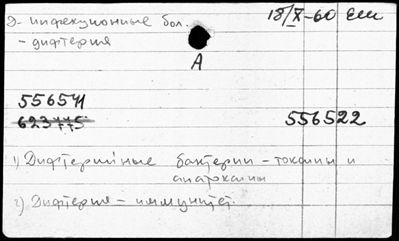 Д- инфекционные бол. 18/X-60 Еш
- дифтерия
А
556571
623775 556522
1) Дифтерийные бактерии - токсины и
анатоксины
2) Дифтерия - иммунитет.